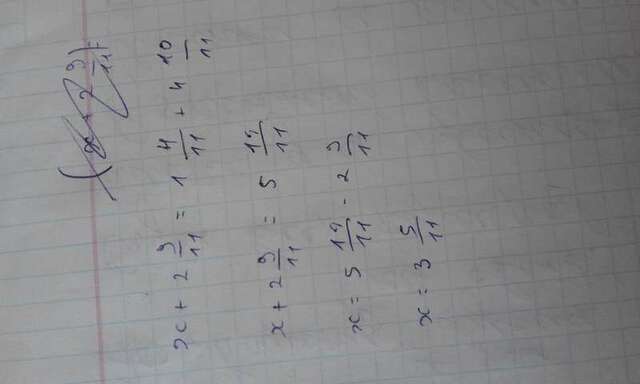 (x + 2 9/11) =
x + 2 9/11 = 1 4/11 + 4 10/11
x + 2 9/11 = 5 14/11
x = 5 14/11 - 2 9/11
x = 3 5/11